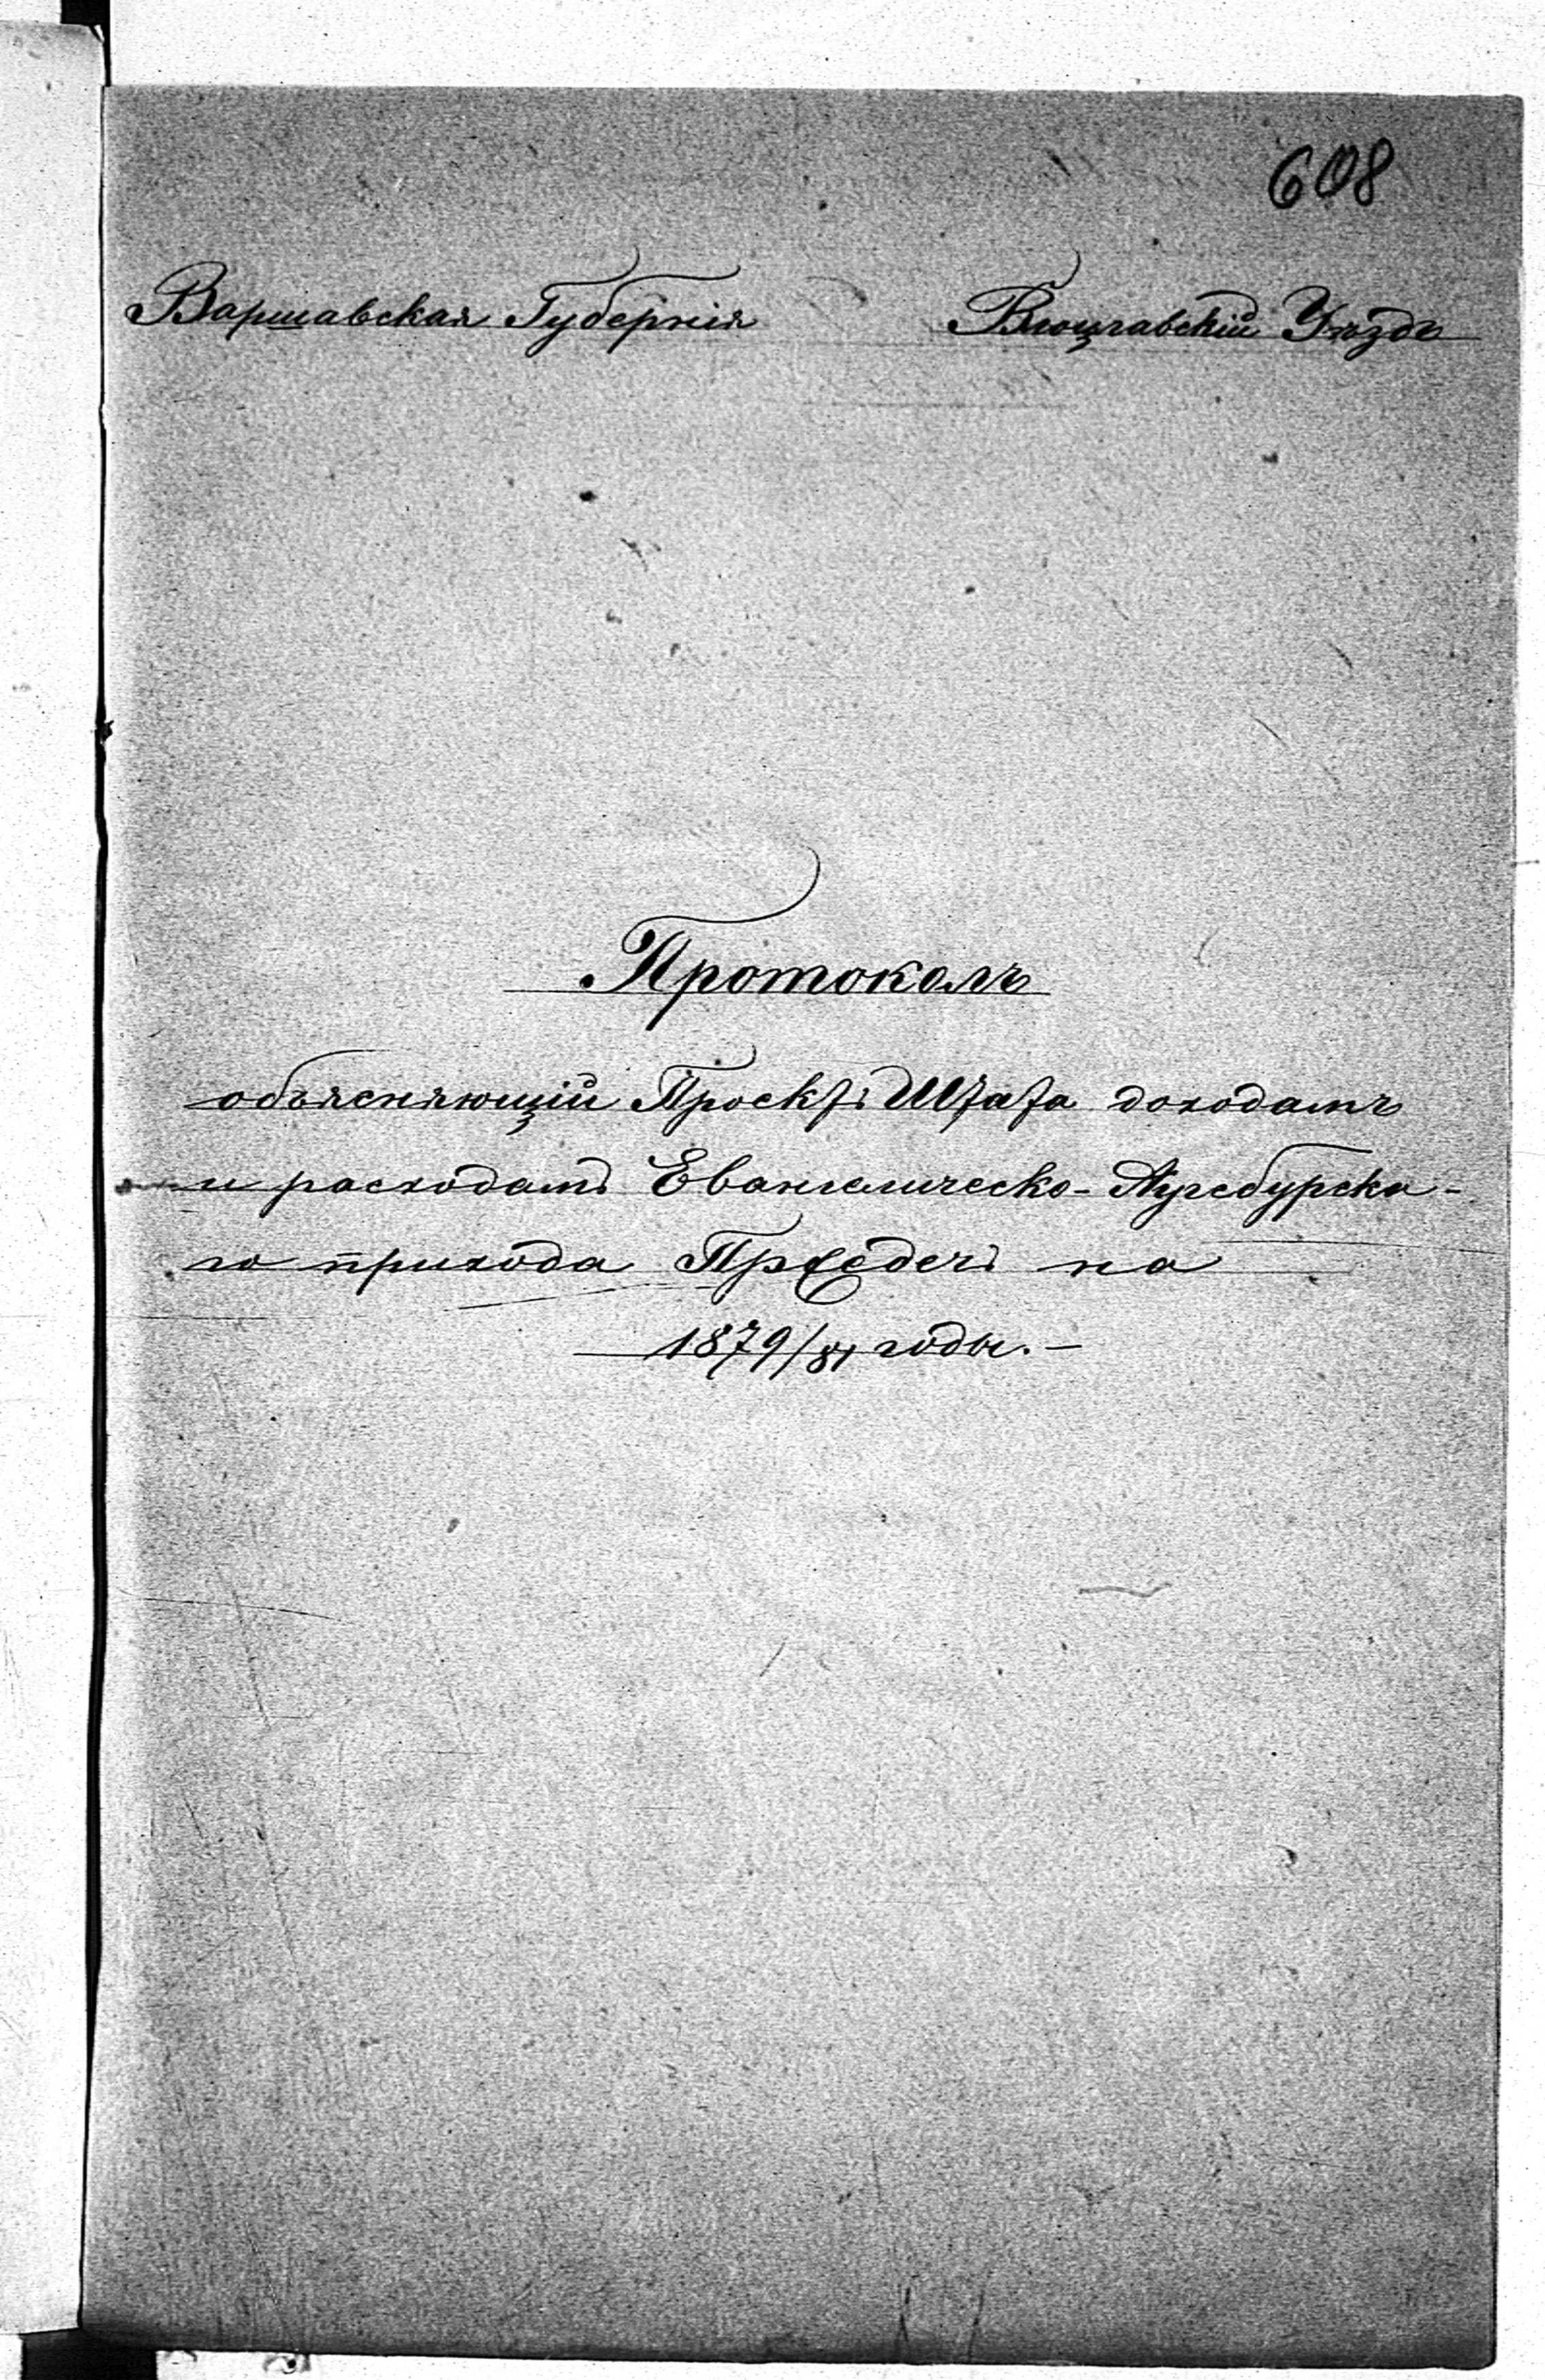 608
Варшавская Губернія Влоцлавскій Уѣздъ
Протоколъ
объясняющій Проектъ Штата доходамъ
и расходамъ Евангелическо-Аугсбурска-
го прихода Пржедечъ на
1879/81 годы.-